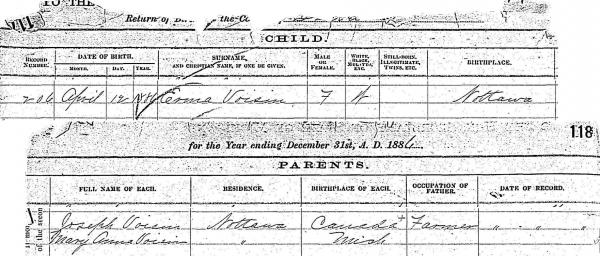 TO THE
Return of the Co
CHILD.
RECORD NUMBER. DATE OF BIRTH. SURNAME, AND CHRISTIAN NAME, IF ONE BE GIVEN. MALE OR FEMALE. WHITE, BLACK, MULATTO, ETC. STILL-BORN, ILLEGITIMATE, TWINS, ETC. BIRTHPLACE.
MONTH. DAY. YEAR.
206 April 12 Erma Voisin F W Nottawa
118
for the Year ending December 31st, A. D. 1886
PARENTS.
FULL NAME OF EACH. RESIDENCE. BIRTHPLACE OF EACH. OCCUPATION OF FATHER. DATE OF RECORD.
Joseph Voisin Nottawa Canada + Farmer " " "
Mary Anna Voisin " Mich
of the secon